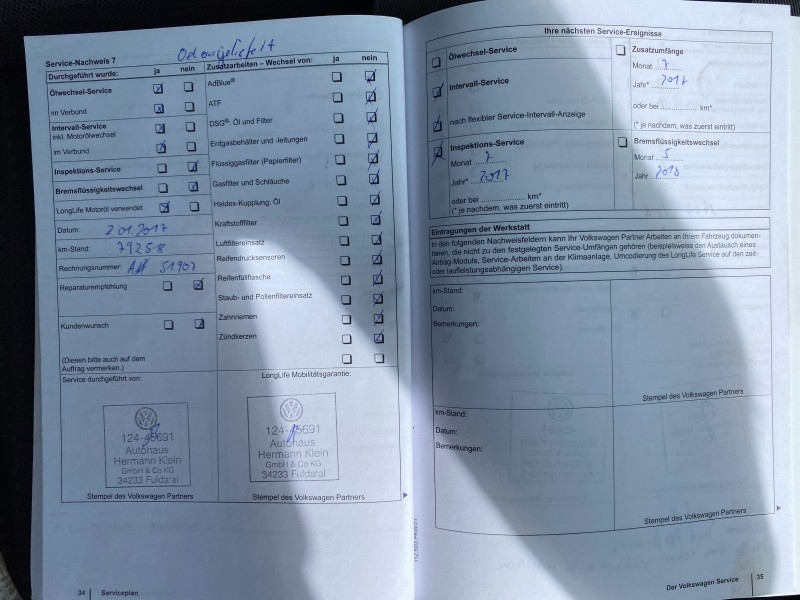 Service-Nachweis 7
Durchgeführt wurde: ja nein
Ölwechsel-Service
im Verbund
Intervall-Service
inkl. Motorölwechsel
im Verbund
Inspektions-Service
Bremsflüssigkeitswechsel
LongLife Motoröl verwendet
Datum: 2.01.2017
km-Stand: 79258
Rechnungsnummer: 51907
Reparaturempfehlung
Kundenwunsch
(Diesen bitte auch auf dem
Auftrag vermerken.)
Zusatzarbeiten – Wechsel von: ja nein
AdBlue®
ATF
DSG®: Öl und Filter
Erdgasbehälter und -leitungen
Flüssiggasfilter (Papierfilter)
Gasfilter und Schläuche
Haldex-Kupplung: Öl
Kraftstofffilter
Luftfiltereinsatz
Reifendrucksensoren
Reifenfüllflasche
Staub- und Pollenfiltereinsatz
Zahnriemen
Zündkerzen
Service durchgeführt von:
124-45691
Autohaus
Hermann Klein
GmbH & Co.KG
34233 Fuldatal
Stempel des Volkswagen Partners
LongLife Mobilitätsgarantie:
124-45691
Autohaus
Hermann Klein
GmbH & Co.KG
34233 Fuldatal
Stempel des Volkswagen Partners
34 Serviceplan
Ihre nächsten Service-Ereignisse
Ölwechsel-Service
Intervall-Service
nach flexibler Service-Intervall-Anzeige
Inspektions-Service
Monat 7
Jahr* 2017
oder bei km*
(* je nachdem, was zuerst eintritt)
Zusatzumfänge
Monat 7
Jahr* 2017
oder bei km*
(* je nachdem, was zuerst eintritt)
Bremsflüssigkeitswechsel
Monat 5
Jahr 2018
Eintragungen der Werkstatt
In den folgenden Nachweisfeldern kann Ihr Volkswagen Partner Arbeiten an Ihrem Fahrzeug dokumen-
tieren, die nicht zu den festgelegten Service-Umfängen gehören (beispielsweise den Austausch eines
Airbag-Moduls, Service-Arbeiten an der Klimaanlage, Umcodierung des LongLife Service auf den zeit-
oder laufleistungsabhängigen Service).
km-Stand:
Datum:
Bemerkungen:
Stempel des Volkswagen Partners
km-Stand:
Datum:
Bemerkungen:
Stempel des Volkswagen Partners
Der Volkswagen Service 35